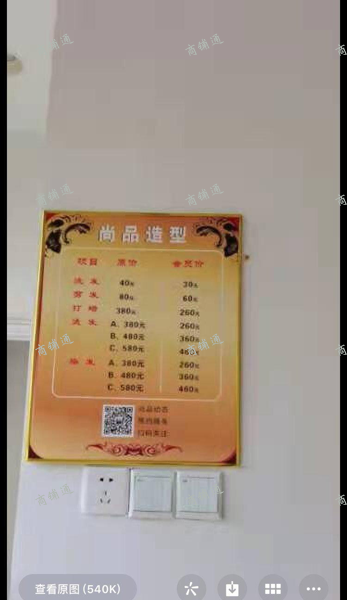 商铺通 商铺通
商铺通 商铺通
尚品造型
项目 原价 会员价
洗发 40元 30元
剪发 80元 60元
打蜡 380元 260元
烫发 A. 380元 260元
B. 480元 360元
C. 580元 460元
染发 A. 380元 260元
B. 480元 360元
C. 580元 460元
尚品动态
预约服务
扫码关注
商铺通 商铺通
商铺通 商铺通
查看原图(540K)